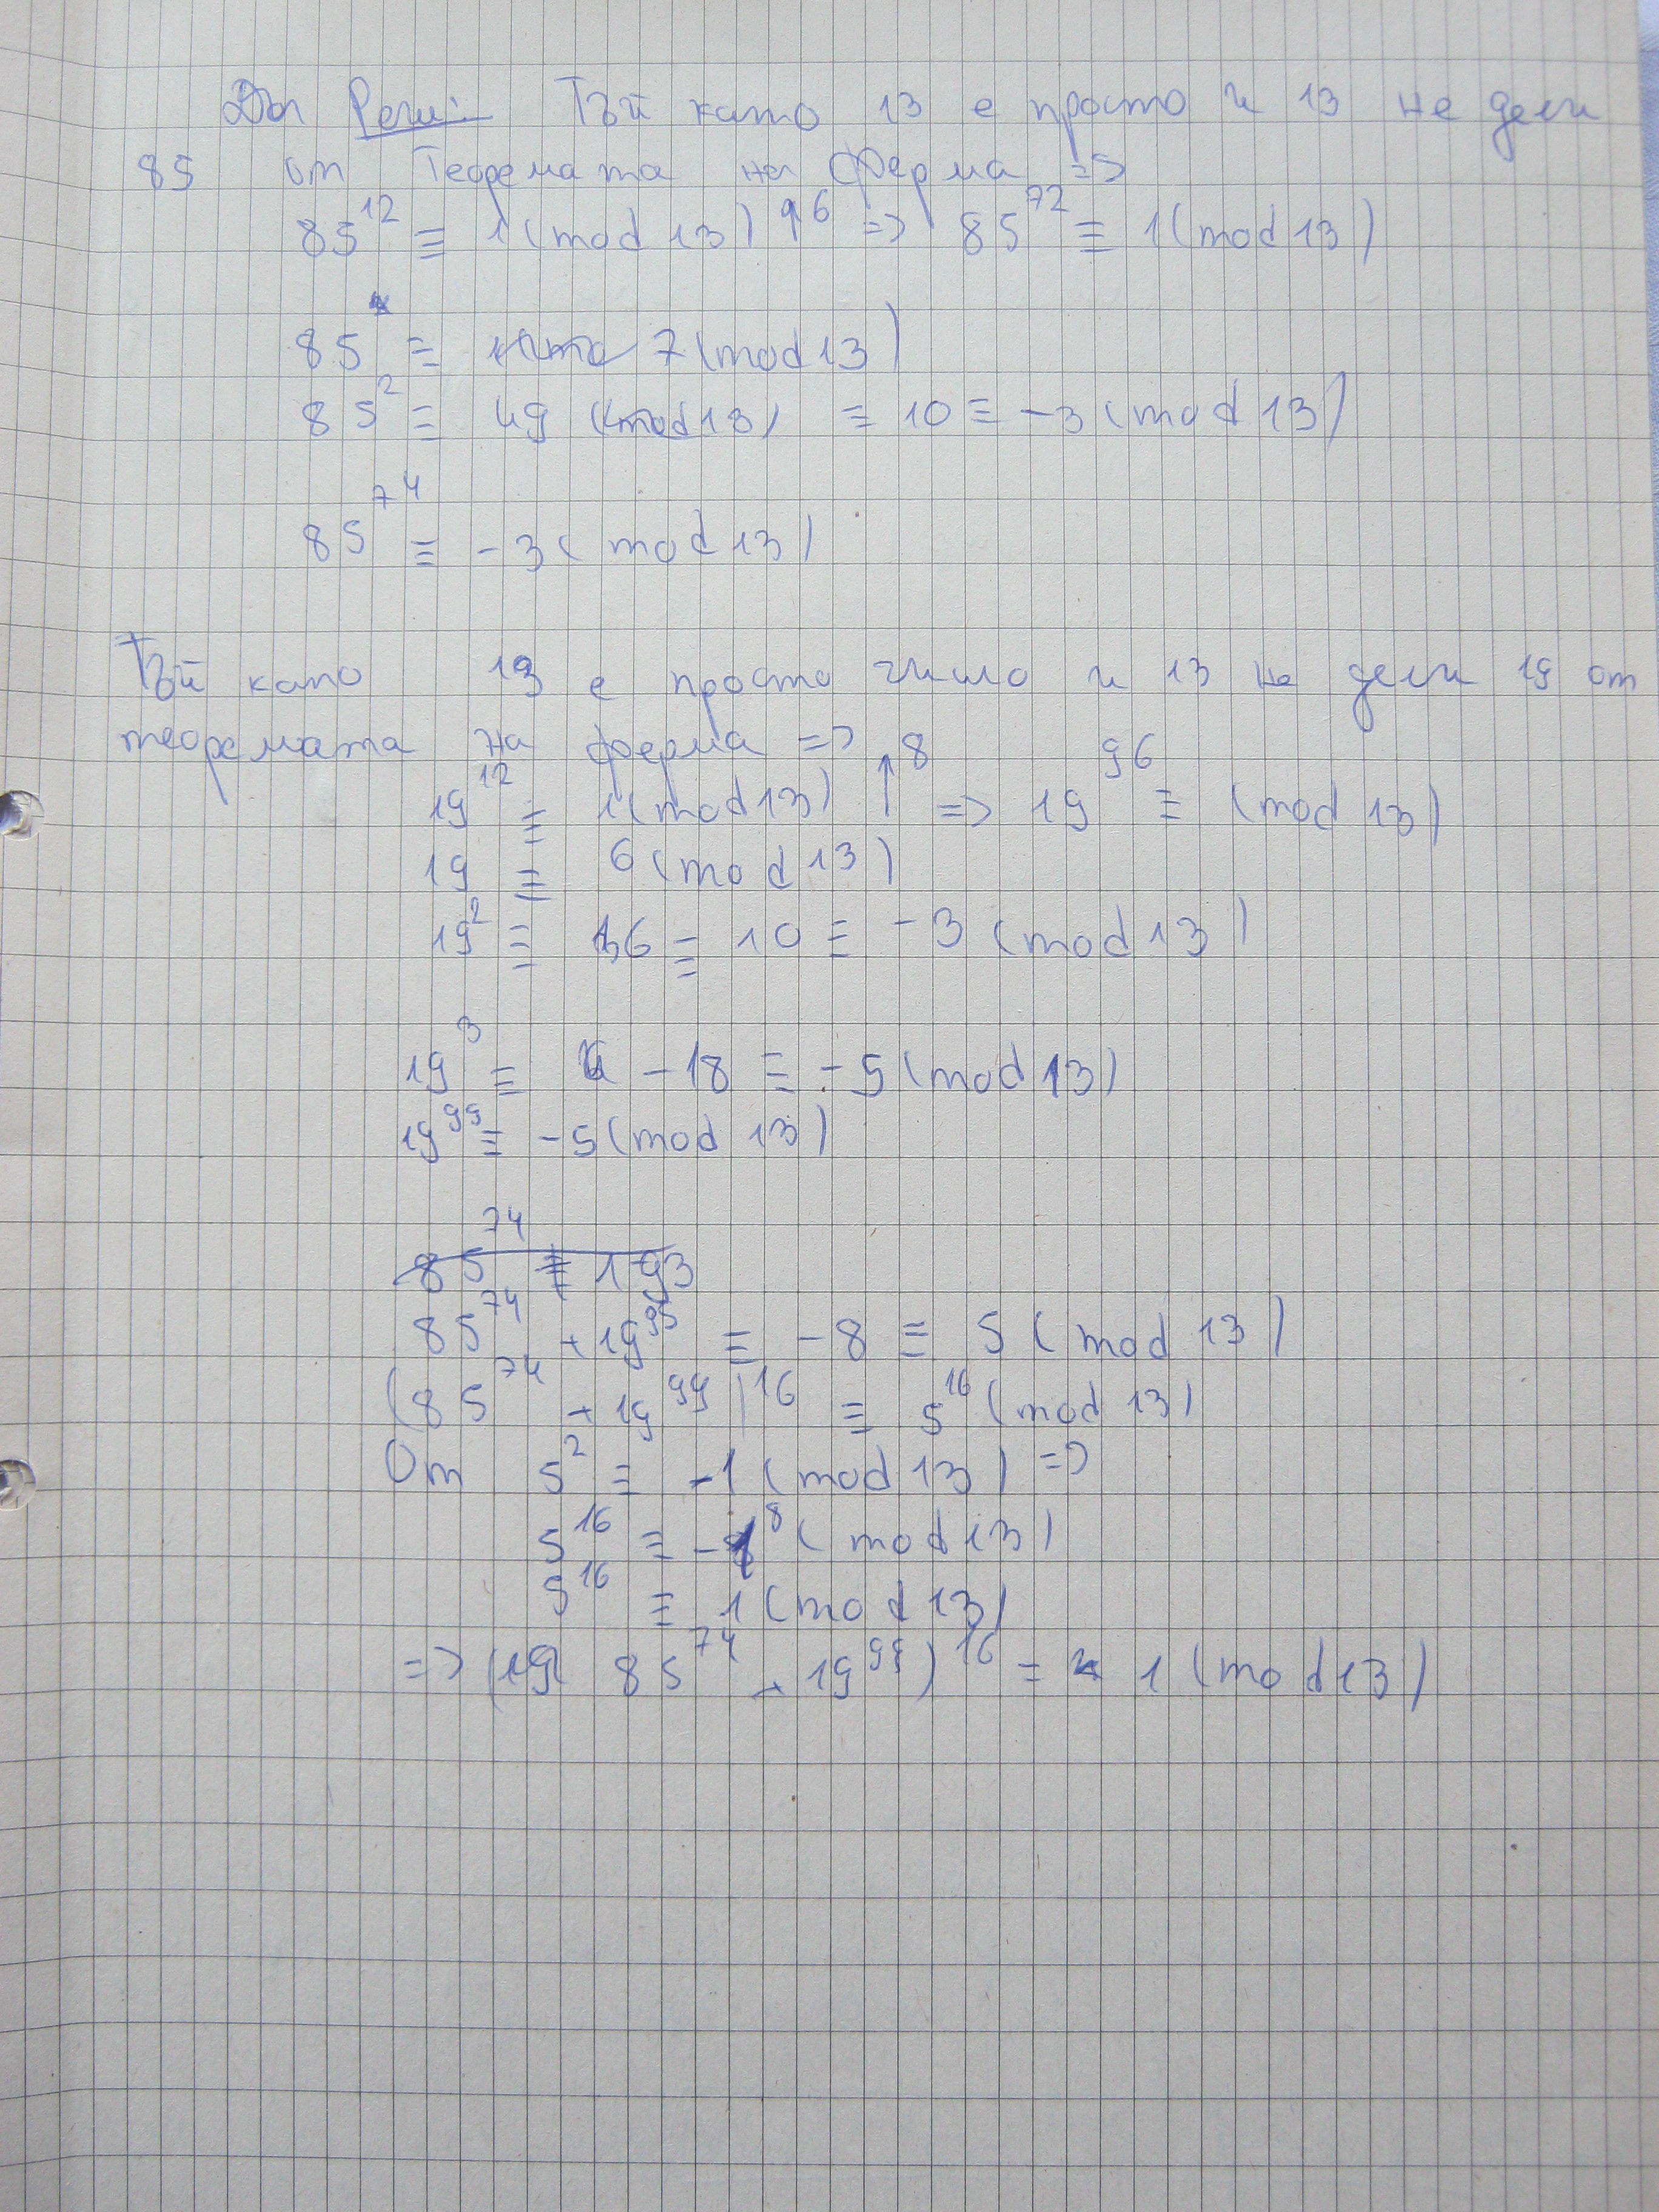 Реш: Тъй като 13 е просто и 13 не дели
85 от Теоремата на Ферма =>
85^12 ≡ 1 (mod 13) ↑6 => 85^72 ≡ 1 (mod 13)
85 ≡ 7 (mod 13)
85^2 ≡ 49 (mod 13) ≡ 10 ≡ -3 (mod 13)
85^74 ≡ -3 (mod 13)
Тъй като 13 е просто число и 13 не дели 19 от
теоремата на ферма =>
19^12 ≡ 1 (mod 13) ↑8 => 19^96 ≡ (mod 13)
19 ≡ 6 (mod 13)
19^2 ≡ 36 ≡ 10 ≡ -3 (mod 13)
19^3 ≡ -18 ≡ -5 (mod 13)
19^99 ≡ -5 (mod 13)
85^74 ≡ 193
85^74 + 19^99 ≡ -8 ≡ 5 (mod 13)
(85^74 + 19^99)^16 ≡ 5^16 (mod 13)
От 5^2 ≡ -1 (mod 13) =>
5^16 ≡ -1^8 (mod 13)
5^16 ≡ 1 (mod 13)
=> ( 85^74 + 19^99)^16 = 1 (mod 13)